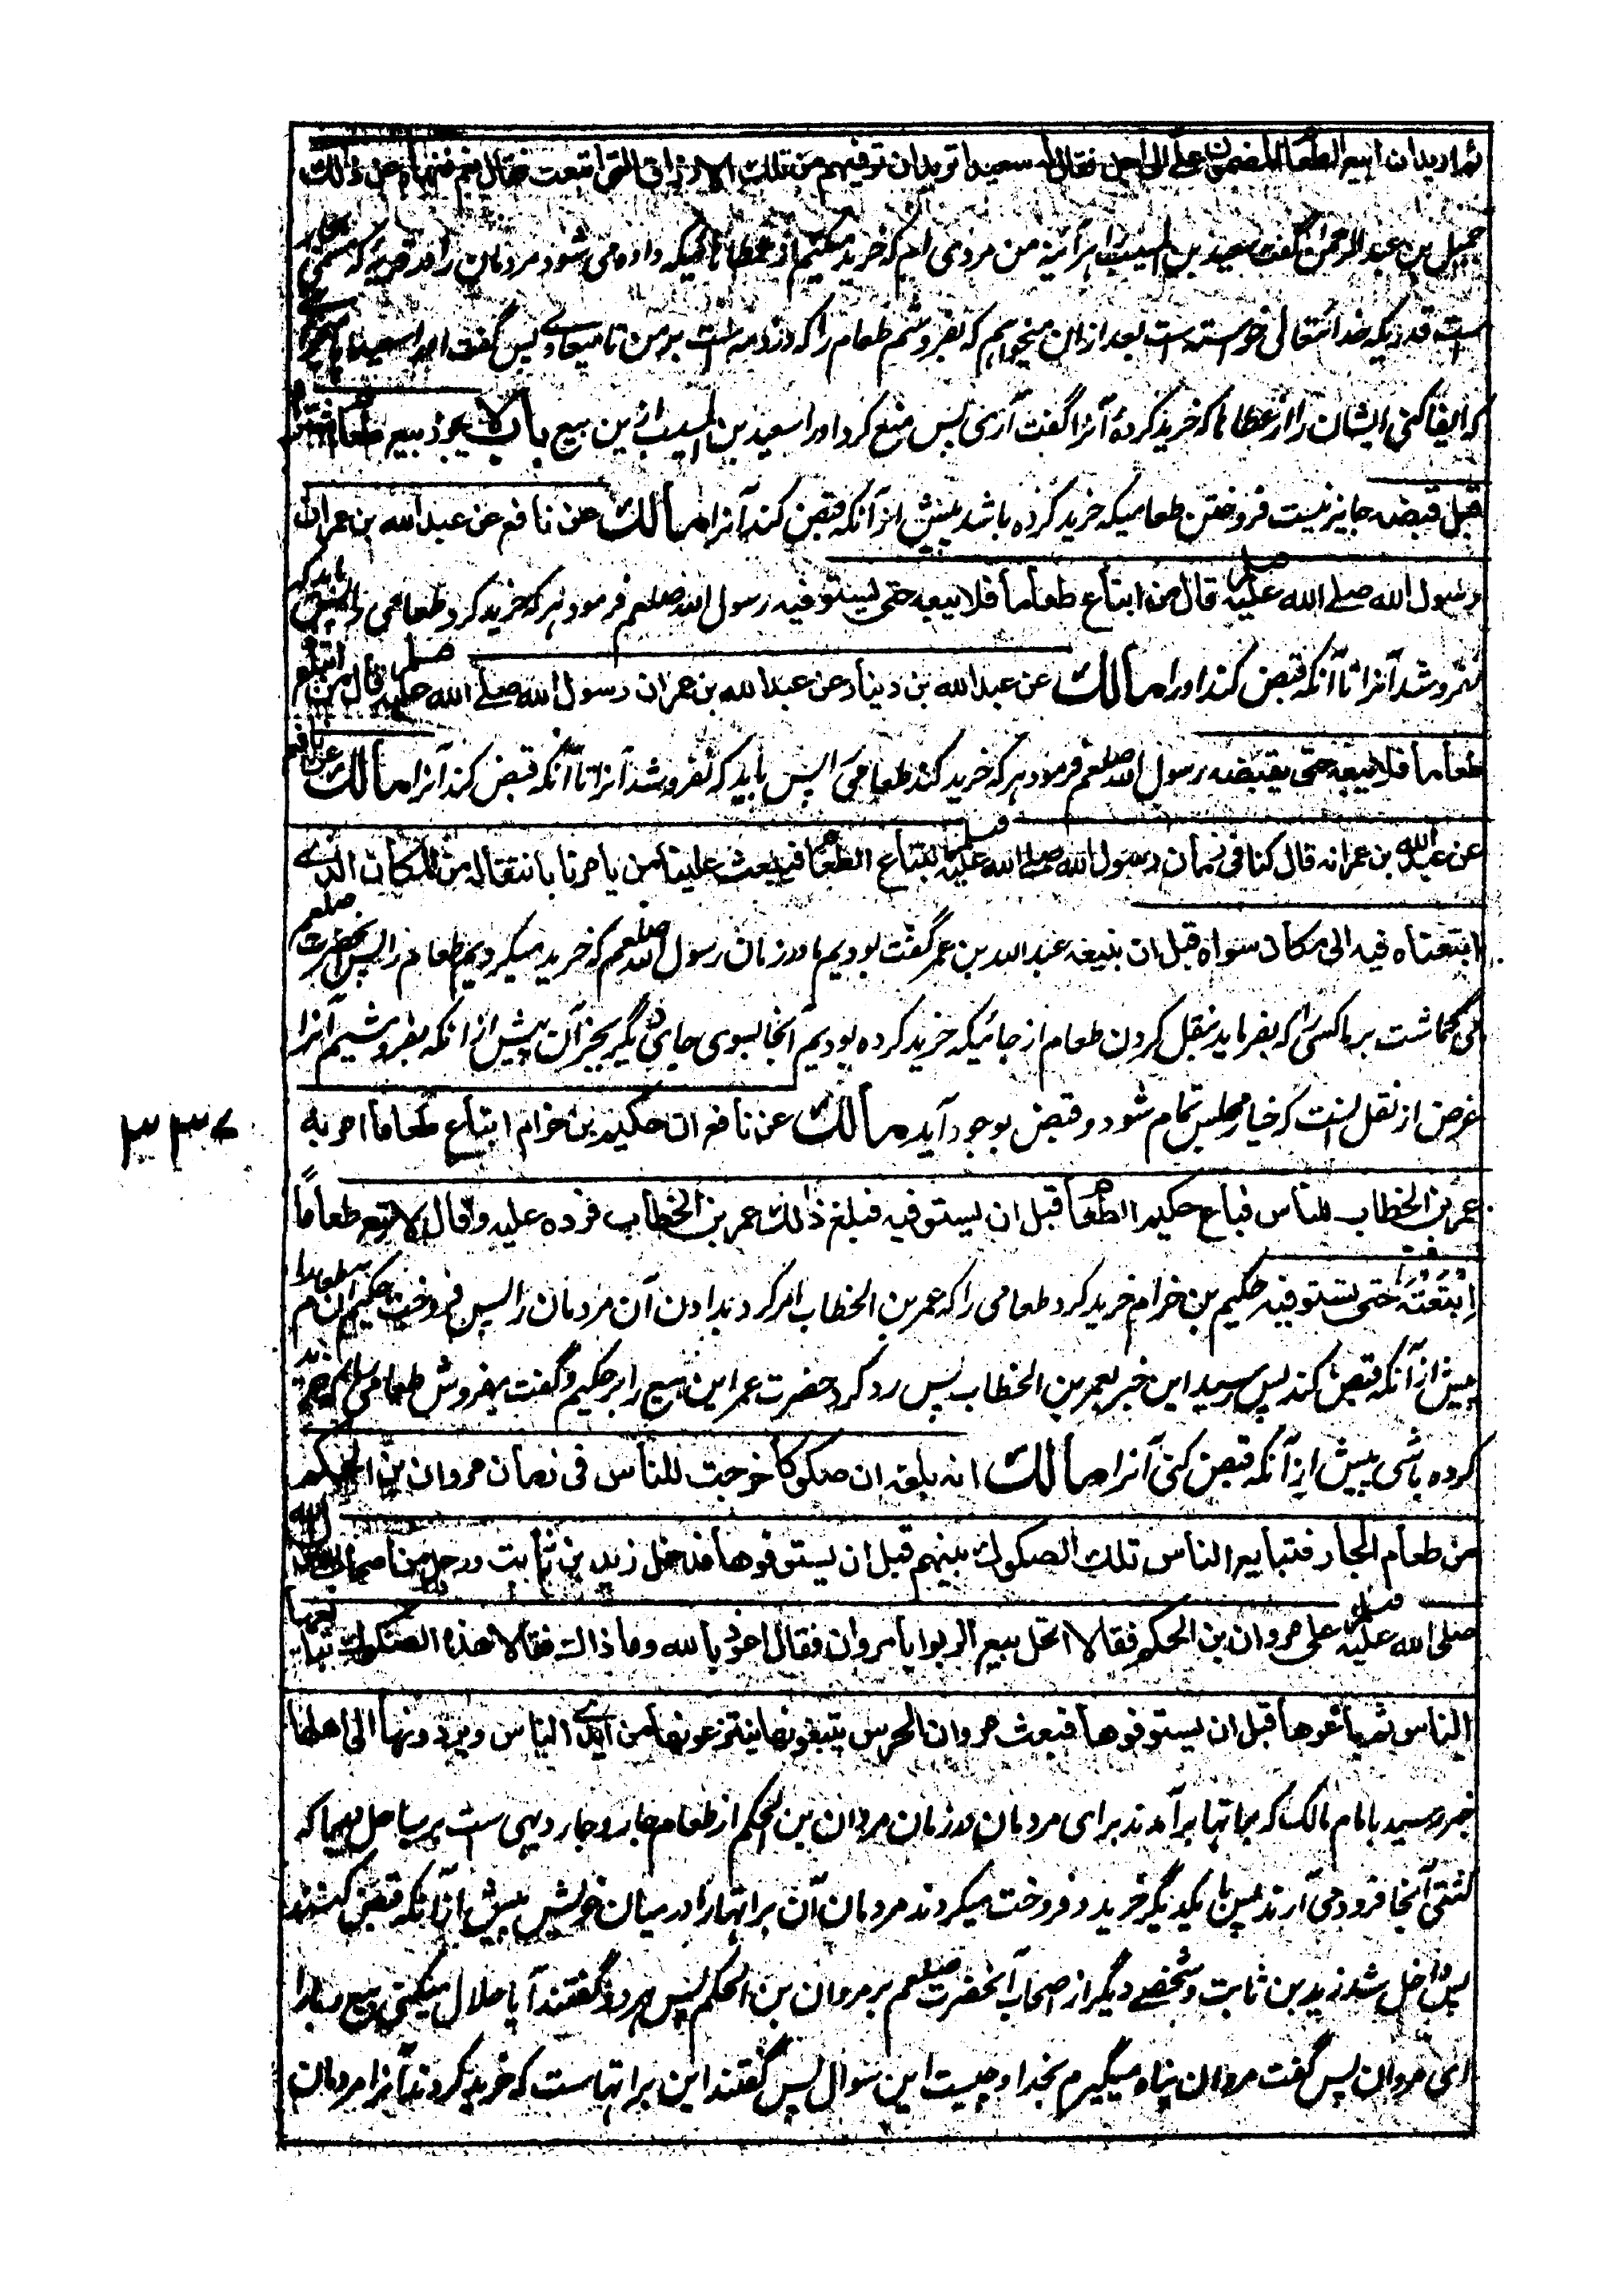 ثم اريد ان ابيع الطعام المضمون علي الى اجل فقال له سعيد اتريد ان توفيهم من تلك الارزاق التي ابتعت فقال نعم فنهاه عن ذلك
جميل بن عبد الرحمن گفت سعيد بن المسيب را هر آئينه من مردى ام كه خريد ميكنم از عطاهائيكه داده مى شود مردمان را در قريه كه مسمى بجار
است قدريكه خدا تعالى خواسته است بعد از ان ميخواهم كه بفروشم طعام را كه در ذمه است بر من تا ميعادے پس گفت او را سعيد آيا ميخواهى
كه ايفا كنى ايشان را از عطاها كه خريد كردۀ آنرا گفت آرى پس منع كرد او را سعيد بن المسيب ازين بيع باب لا يجوز بيع طعام اشتراه
قبل قبضه جايز نيست فروختن طعاميكه خريد كرده باشد پيش از آنكه قبض كند آنرا مالك عن نافع عن عبد الله بن عمر ان
رسول الله صلے الله عليه وسلم قال من ابتاع طعاما فلا يبعه حتى يستوفيه رسول الله صلعم فرمود هر كه خريد كرد طعامى را پس بايد كه
نفروشد آنرا تا آنكه قبض كند او را مالك عن عبد الله بن دينار عن عبد الله بن عمر ان رسول الله صلے الله عليه وسلم قال من ابتاع
طعاما فلا يبعه حتى يقبضه رسول الله صلعم فرمود هر كه خريد كند طعامى را پس بايد كه نفروشد آنرا تا آنكه قبض كند آنرا مالك عن نافع
عن عبد الله بن عمر انه قال كنا فى زمان رسول الله صلے الله عليه وسلم نبتاع الطعام فيبعث علينا من يامرنا بانتقاله من المكان الذے
ابتعناه فيه الى مكان سواه قبل ان نبيعه عبد الله بن عمر گفت بوديم ما در زمان رسول الله صلعم كه خريد ميكرديم طعام را پس آنحضرت صلعم
مى گماشت بر ما كسى را كه بفرمايد بنقل كردن طعام از جائيكه خريد كرده بوديم آنجا بسوى جاى ديگر بجز آن پيش از انكه بفروشيم آنرا
غرض از نقل اينست كه خيار مجلس تمام شود و قبض بوجود آيد مالك عن نافع ان حكيم بن حزام ابتاع طعاما امر به
۳۳۷
عمر بن الخطاب للناس فباع حكيم الطعام قبل ان يستوفيه فبلغ ذلك عمر بن الخطاب فرده عليه وقال لا تبع طعاماً
ابتعته حتى تستوفيه حكيم بن حزام خريد كرد طعامى را كه عمر بن الخطاب امر كرد بدادن آن مردمان را پس فروخت حكيم آن طعام را
پيش از آنكه قبض كند پس رسيد اين خبر بعمر بن الخطاب پس رد كرد حضرت عمر اين بيع را بر حكيم و گفت مفروش طعامى را كه خريد
كرده باشى پيش از آنكه قبض كنى آنرا مالك انه بلغه ان صكوكا خرجت للناس فى زمان مروان بن الحكم
من طعام الجار فتبايع الناس تلك الصكوك بينهم قبل ان يستوفوها فدخل زيد بن ثابت ورجل من اصحاب رسول الله
صلى الله عليه وسلم على مروان بن الحكم فقالا اتحل بيع الربوا يا مروان فقال اعوذ بالله وما ذاك فقالا هذه الصكوك تبايعها
الناس ثم باعوها قبل ان يستوفوها فبعث مروان الحرس يتبعونها ينتزعونها من ايدے الناس ويردونها الى اهلها
خبر رسيد بامام مالك كه براتها برآمدند براى مردمان در زمان مروان بن الحكم از طعام جار و جار ديهى ست بر ساحل كه
كشتى آنجا فرود مى آرند پس با يكديگر خريد و فروخت ميكردند مردمان آن براتها را در ميان خويش پيش از آنكه قبض كنند
پس داخل شد زيد بن ثابت و شخصے ديگر از اصحاب آنحضرت صلعم بر مروان بن الحكم پس هر دو گفتند آيا حلال ميكنى بيع ربا را
اى مروان پس گفت مروان پناه ميگيرم بخدا و چيست اين سوال پس گفتند اين براتهاست كه خريد كردند آنرا مردمان